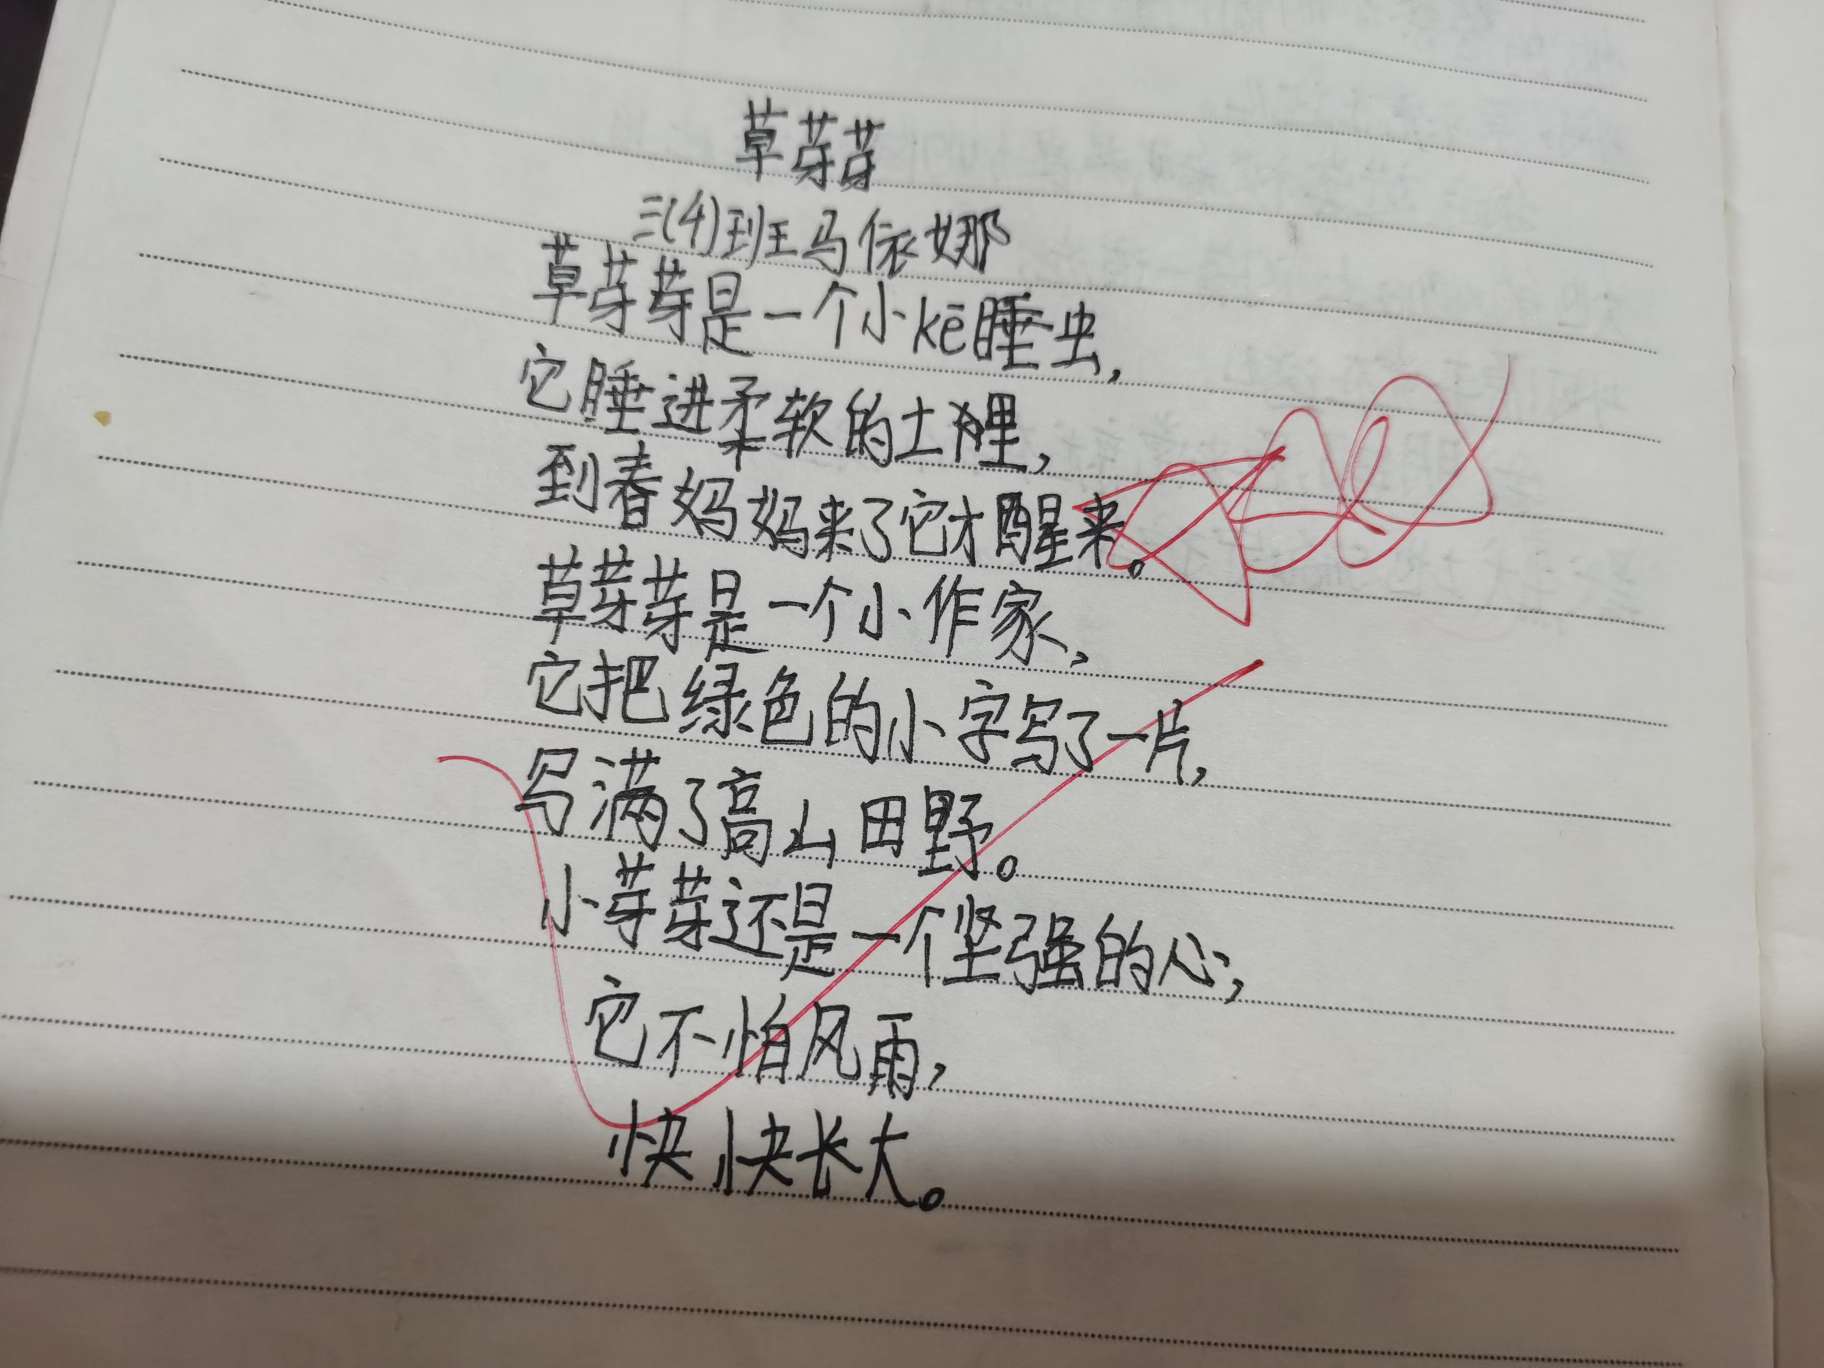 草芽芽
三(4)班马依娜
草芽芽是一个小kē睡虫,
它睡进柔软的土里,
到春妈妈来了它才醒来。
草芽芽是一个小作家,
它把绿色的小字写了一片,
写满了高山田野。
小芽芽还是一个坚强的心;
它不怕风雨,
快快长大。